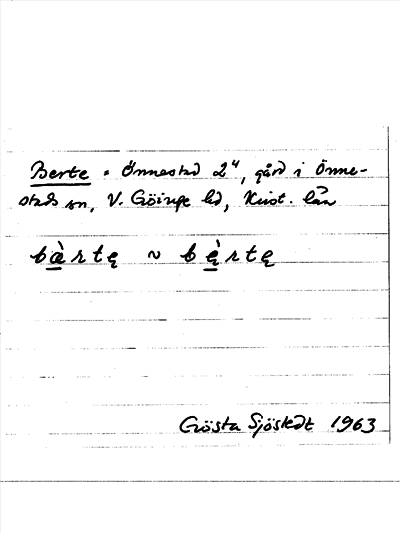 Berte = Önnestad 2⁴, gård i Önne-
stads sn, V. Göinge hd, Krist. län
bàrtę ~ bę̀rtę
Gösta Sjöstedt 1963